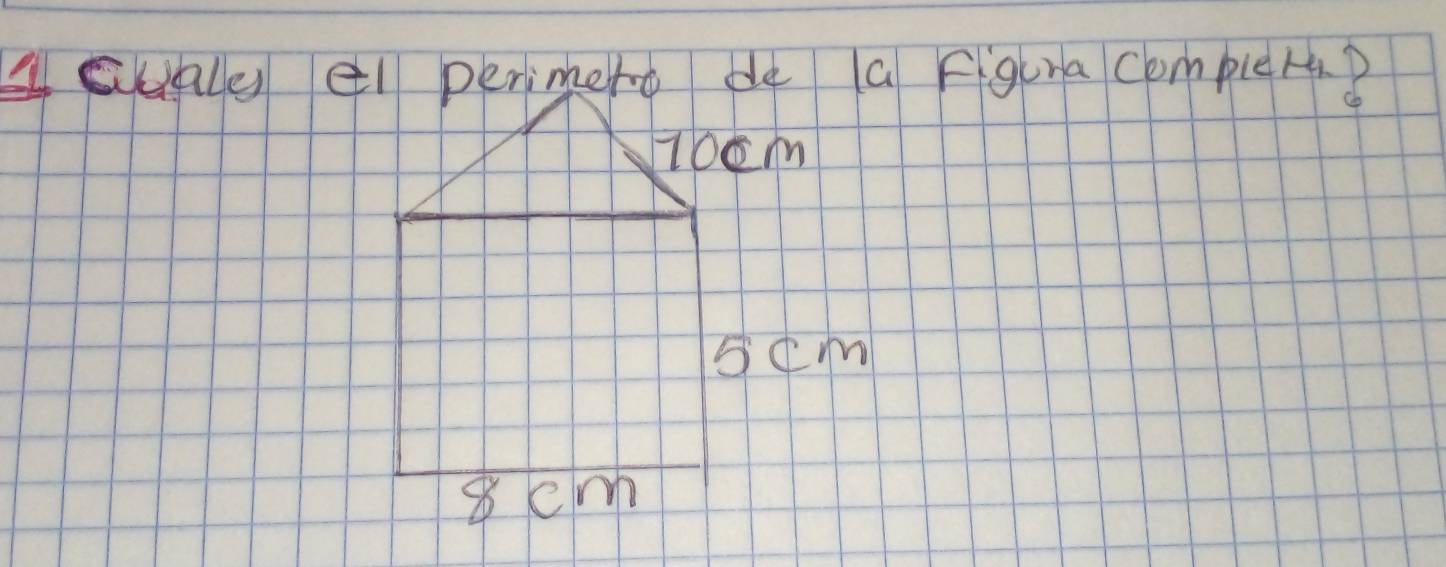 1 Cuales el perimetro de la Figura completa?
10cm
5cm
8cm